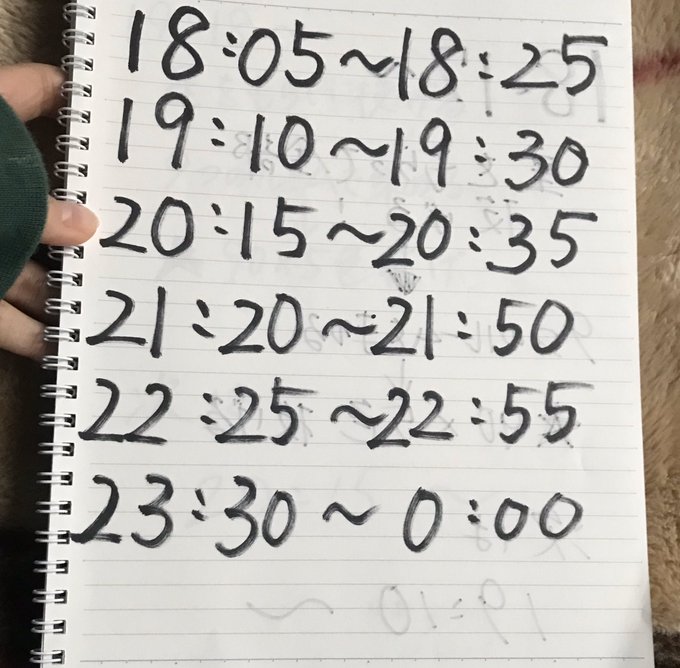 18:05~18:25
19:10~19:30
20:15~20:35
21:20~21:50
22:25~22:55
23:30~0:00